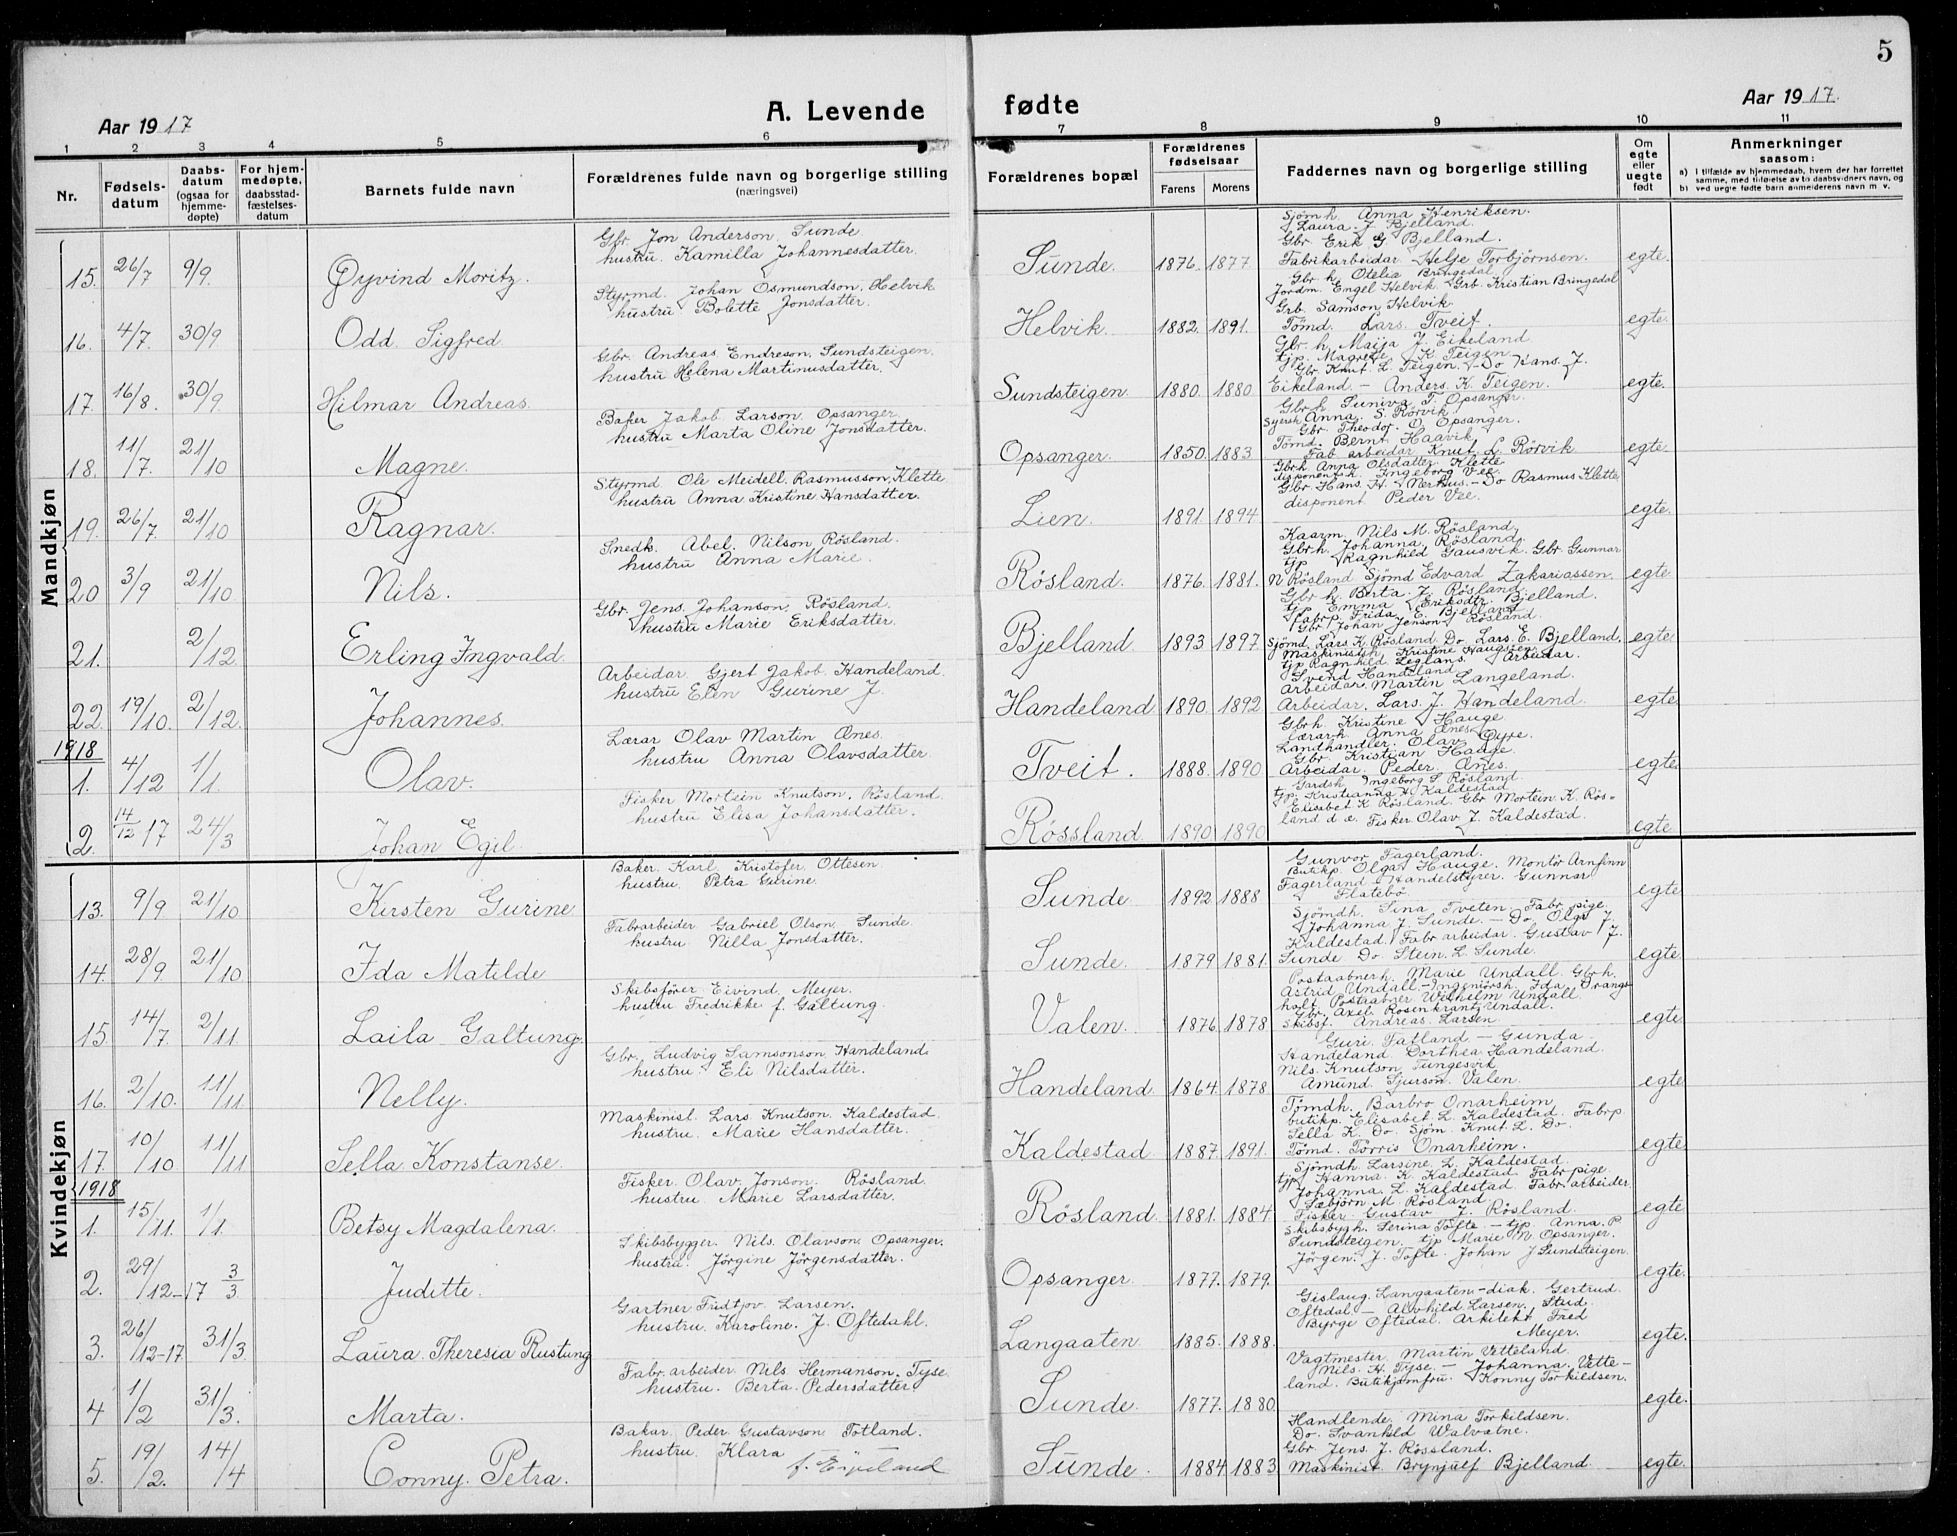 5
Aar 1917
A. Levende fødte
Aar 1917.
1 2 3 4 5 6 7 8 9 10 11
Nr.
Fødsels-
datum
Daabs-
datum
(ogsaa for
hjemme-
døpte)
For hjem-
medøpte,
daabsstad-
fæstelses-
datum
Barnets fulde navn
Forældrenes fulde navn og borgerlige stilling
(næringsvei)
Forældrenes bopæl
Forældrenes
fødselsaar
Farens Morens
Faddernes navn og borgerlige stilling
Om
egte
eller
uegte
født
Anmerkninger
saasom:
a) I tilfælde av hjemmedaab, hvem der har forrettet
samme, med tilføielse av to daabsvidners navn, og
b) ved uegte fødte barn anmelderens navn m. v.
Mandkjøn
15. 26/7 9/9. Øyvind Moritz.
Gbr. Jon Anderson, Sunde
hustru. Kamilla Johannesdatter.
Sunde. 1876. 1877.
Sjömh. Anna Henriksen.
Laura. J. Bjelland.
Gbr. Erik G. Bjelland.
Fabrikarbeidar Helje Torbjørnsen.
egte.
16. 4/7. 30/9 Odd. Sigfred
Styrmd. Johan Osmundson, Helvik
hustru Bolette Jonsdatter.
Helvik. 1882. 1891.
Gbr. h. Otelia Bringedal
Jordm. Engel Helvik. Grb. Kristian Bringedal
Grb. Samson Helvik.
Tömd. Lars. Tveit.
egte.
17. 16/8. 30/9. Hilmar Andreas.
Gbr. Andreas Endreson, Sundsteigen.
hustru Helena Martinusdatter.
Sundsteigen. 1880. 1880
Gbr. h. Marja J. Eikeland
tjp. Magrete K. Teigen.
Gbr. Knut L. Teigen. Do Hans. J.
Eikeland. – Anders. K. Teigen.
egte.
18. 11/7. 21/10 Magne.
Baker Jakob. Larson. Opsanger.
hustru Marta Oline Jonsdatter.
Opsanger. 1850. 1883.
Gbr. h. Suniva T. Opsanger.
Syersk Anna. S. Rörvik.
Gbr. Theodor. O. Opsanger.
Tömd. Bernt Haavik
Fab. arbeidar Knut. L. Rörvik
egte.
19. 26/7. 21/10 Ragnar.
Styrmd Ole Meidell. Rasmusson, Klette
hustru Anna Kristine Hansdatter.
Lien. 1891. 1894.
Gbrh Anna Olsdatter Klette
disponent h. Ingeborg Vee.
Gbr. Hans. H. Nerhus. – Do Rasmus Klette,
disponent Peder Vee.
egte.
20 3/9 21/10. Nils.
Snedk. Abel. Nilson Røsland.
hustru Anna Marie.
Røsland. 1876. 1881.
Kaarm. Nils M. Røsland
Gbr.h. Johanna. Røsland
tjp Ragnhild Gausvik. Gbr. Gunnar
N Røsland Sjömd Edvard Zakariassen.
egte.
21. 2/12. Erling Ingvald.
Gbr. Jens. Johanson, Røsland.
hustru Marie Eriksdatter.
Bjelland. 1893. 1897.
Gbr h. Berta. J. Røsland.
tjp. Emma Eriksdtr. Bjelland.
fabrp. Frida E. Bjelland
Gbr. Johan Jenson Røsland.
Sjömd. Lars K. Røsland. Do. Lars. E. Bjelland.
egte.
22. 19/10. 2/12. Johannes.
Arbeidar Gjert Jakob. Handeland.
hustru Elen Gurine J.
Handeland 1890. 1892
Maskinisth. Kristine Haugsgen
tjp Ragnhild. Leglans. Arbeidar.
Svend Handeland.
Arbeidar Martin Langeland.
Arbeidar. Lars. J. Handeland.
egte.
1918
1. 4/12 1/1. Olav.
Lærar Olav Martin Ænes.
hustru Anna Olavsdatter.
Tveit. 1888. 1890
Gbr h. Kristine Hauge.
Lærarh. Anna Ænes.
Landhandler. Olav Øyre.
Gbr. Kristian Hauge.
Arbeidar. Peder. Ænes.
egte.
2. 14/12 17 24/3 Johan Egil.
Fisker Mortein Knutson, Røsland.
hustru Elisa Johansdatter.
Røssland. 1890. 1890
Gardsh. Ingeborg S. Røsland
tjp. Kristianna H. Kaldestad
Elisabet K Røsland. Gbr Mortein K. Røs=
land d æ. Fisker Olav J. Kaldestad.
egte
Kvindekjøn
13. 9/9. 21/10 Kirsten Gurine
Baker. Karl Kristofer Ottesen
hustru. Petra Gurine.
Sunde. 1892 1888
Gunvor Fagerland.
Butikp. Olga Hauge. Montör Arnfinn
Fagerland – Handelstyrer. Gunnar
Flatebø
egte.
14. 28/9 21/10 Ida Matilde
Fabrarbeider Gabriel Olson. Sunde
hustru Nilla Jonsdatter.
Sunde. 1879 1881.
Sjömdh. Sina Tveten. Fabr. pige
Johanna J. Sunde. – Do. Olga J.
Kaldestad. Fabr arbeidar. Gustav J.
Sunde Do Stein. L. Sunde.
egte.
15. 14/7 2/11. Laila Galtung.
Skibsfører Eivind Meyer.
hustru Fredrikke f. Galtung.
Valen. 1876. 1878.
Postaabnerh. Marie Undall. Gbr. h.
Astrid Undall. – Ingeniørsh. Ida Orangs
holt Postaabner Wilhelm Undall.
Gbr. Axel Rosenkrantz Undall.
Skibsf. Andreas. Larsen
egte.
16. 2/10. 11/11. Nelly.
Gbr. Ludvig Samsonson, Handeland.
hustru. Eli Nilsdatter.
Handeland. 1864. 1878.
Guri. Fatland – Gunda
Handeland Dorthea Handeland.
Nils. Knutson Tungesvik
Amund. Sjurson. Valen.
egte.
17. 10/10 11/11 Sella Konstanse.
Maskinist. Lars. Knutson. Kaldestad.
hustru. Marie Hansdatter.
Kaldestad. 1887. 1891.
Tömdh. Barbro Onarheim
butikp. Elisabet L. Kaldestad. Fabrp
Sella K. Do. Sjöm. Knut. L. Do.
Tømd. Torris Onarheim.
egte.
1918
1. 15/11. 1/1. Betsy Magdalena.
Fisker. Olav. Jonson. Røsland.
hustru. Marie Larsdatter.
Røsland. 1881. 1884.
Sjömdh. Larsine. L. Kaldestad
tjp. Hanna. K. Kaldestad Fabr. pige
Johanna. L. Kaldestad. Fabr. arbeider
Sæbjørn M. Røsland.
Fisker. Gustav J. Røsland.
egte.
2. 29/12–17 3/3 Juditte.
Skibsbygger. Nils. Olavson. Opsanger.
hustru. Jörgine Jörgensdatter.
Opsanger. 1877. 1879.
Skibsbygh. Serina Tofte – tjp. Anna. P
Sundsteigen. tjp Marie N. Opsanger.
Jörgen. J. Tofte. Johan J Sundsteigen.
egte.
3. 26/12–17 31/3. Laura. Theresia Rustung
Gartner Fridtjov Larsen.
hustru. Karoline. J. Oftedahl.
Langaaten. 1885. 1888.
Gislaug. Langaaten – diak. Gertrud.
Oftedal – Alvhild Larsen. Stud.
Byrge Oftedal. Arkitekt Fred
Meyer.
egte.
4 1/2 31/3. Marta.
Fabr. arbeider Nils Hermanson. Tyse
hustru. Berta. Pedersdatter
Sunde. 1877. 1880
Vagtmester Martin Vetteland.
Nils. H. Tyse. – Johanna. Vette –
land. Butikjomfru. Konny Torkildsen.
egte.
5. 19/2. 14/4 Conny. Petra.
Bakar. Peder Gustavson Totland.
hustru. Klara
Sunde. 1884. 1883.
Handlende. Mina Torkildsen.
Do. Svanhild Walvatne.
Gbr. Jens. J. Røssland.
Maskinist. Brynjulf Bjelland
egte.